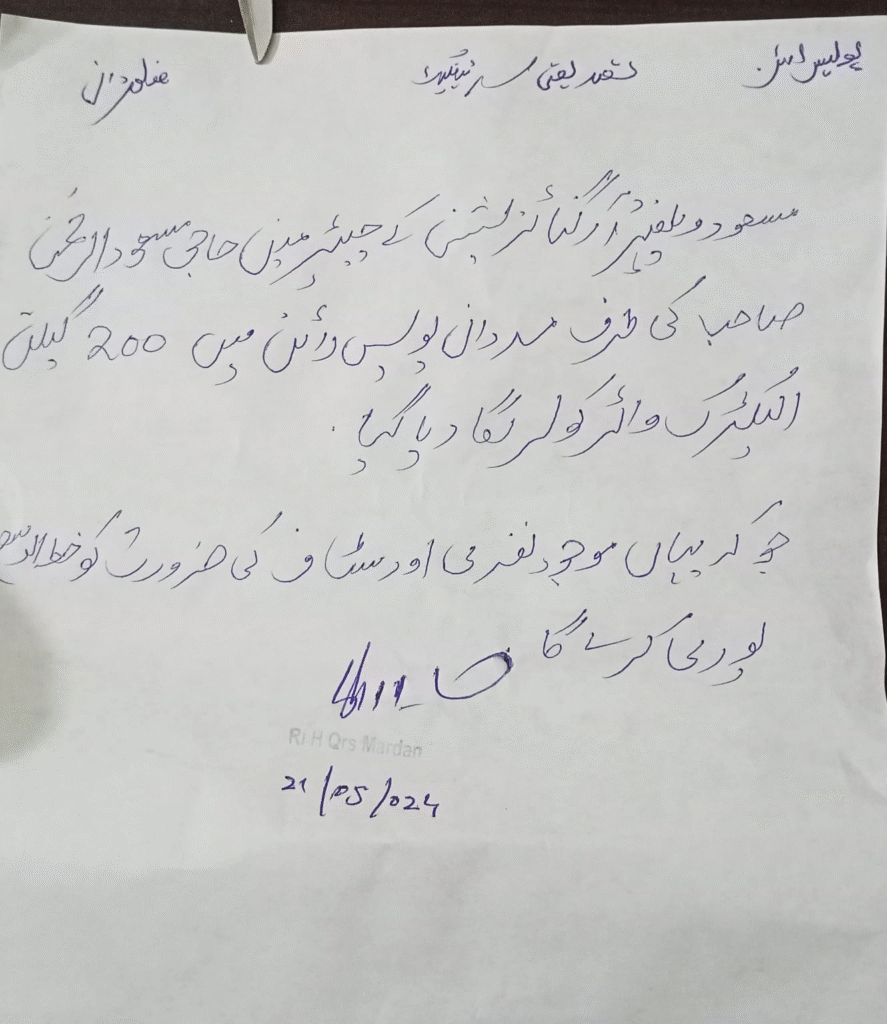 پولیس لائن تصدیقی سرٹیفیکیٹ ضلع مردان
مسعود ویلفیئر آرگنائزیشن کے چیئرمین حاجی مسعود الرحمن
صاحب کی طرف مردان پولیس لائن میں 200 گیلن
الیکٹرک واٹر کولر لگا دیا گیا.
جو کہ یہاں موجود نفری اور سٹاف کی ضرورت کو
پوری کرے گا
RI H Qrs Mardan
21/05/024